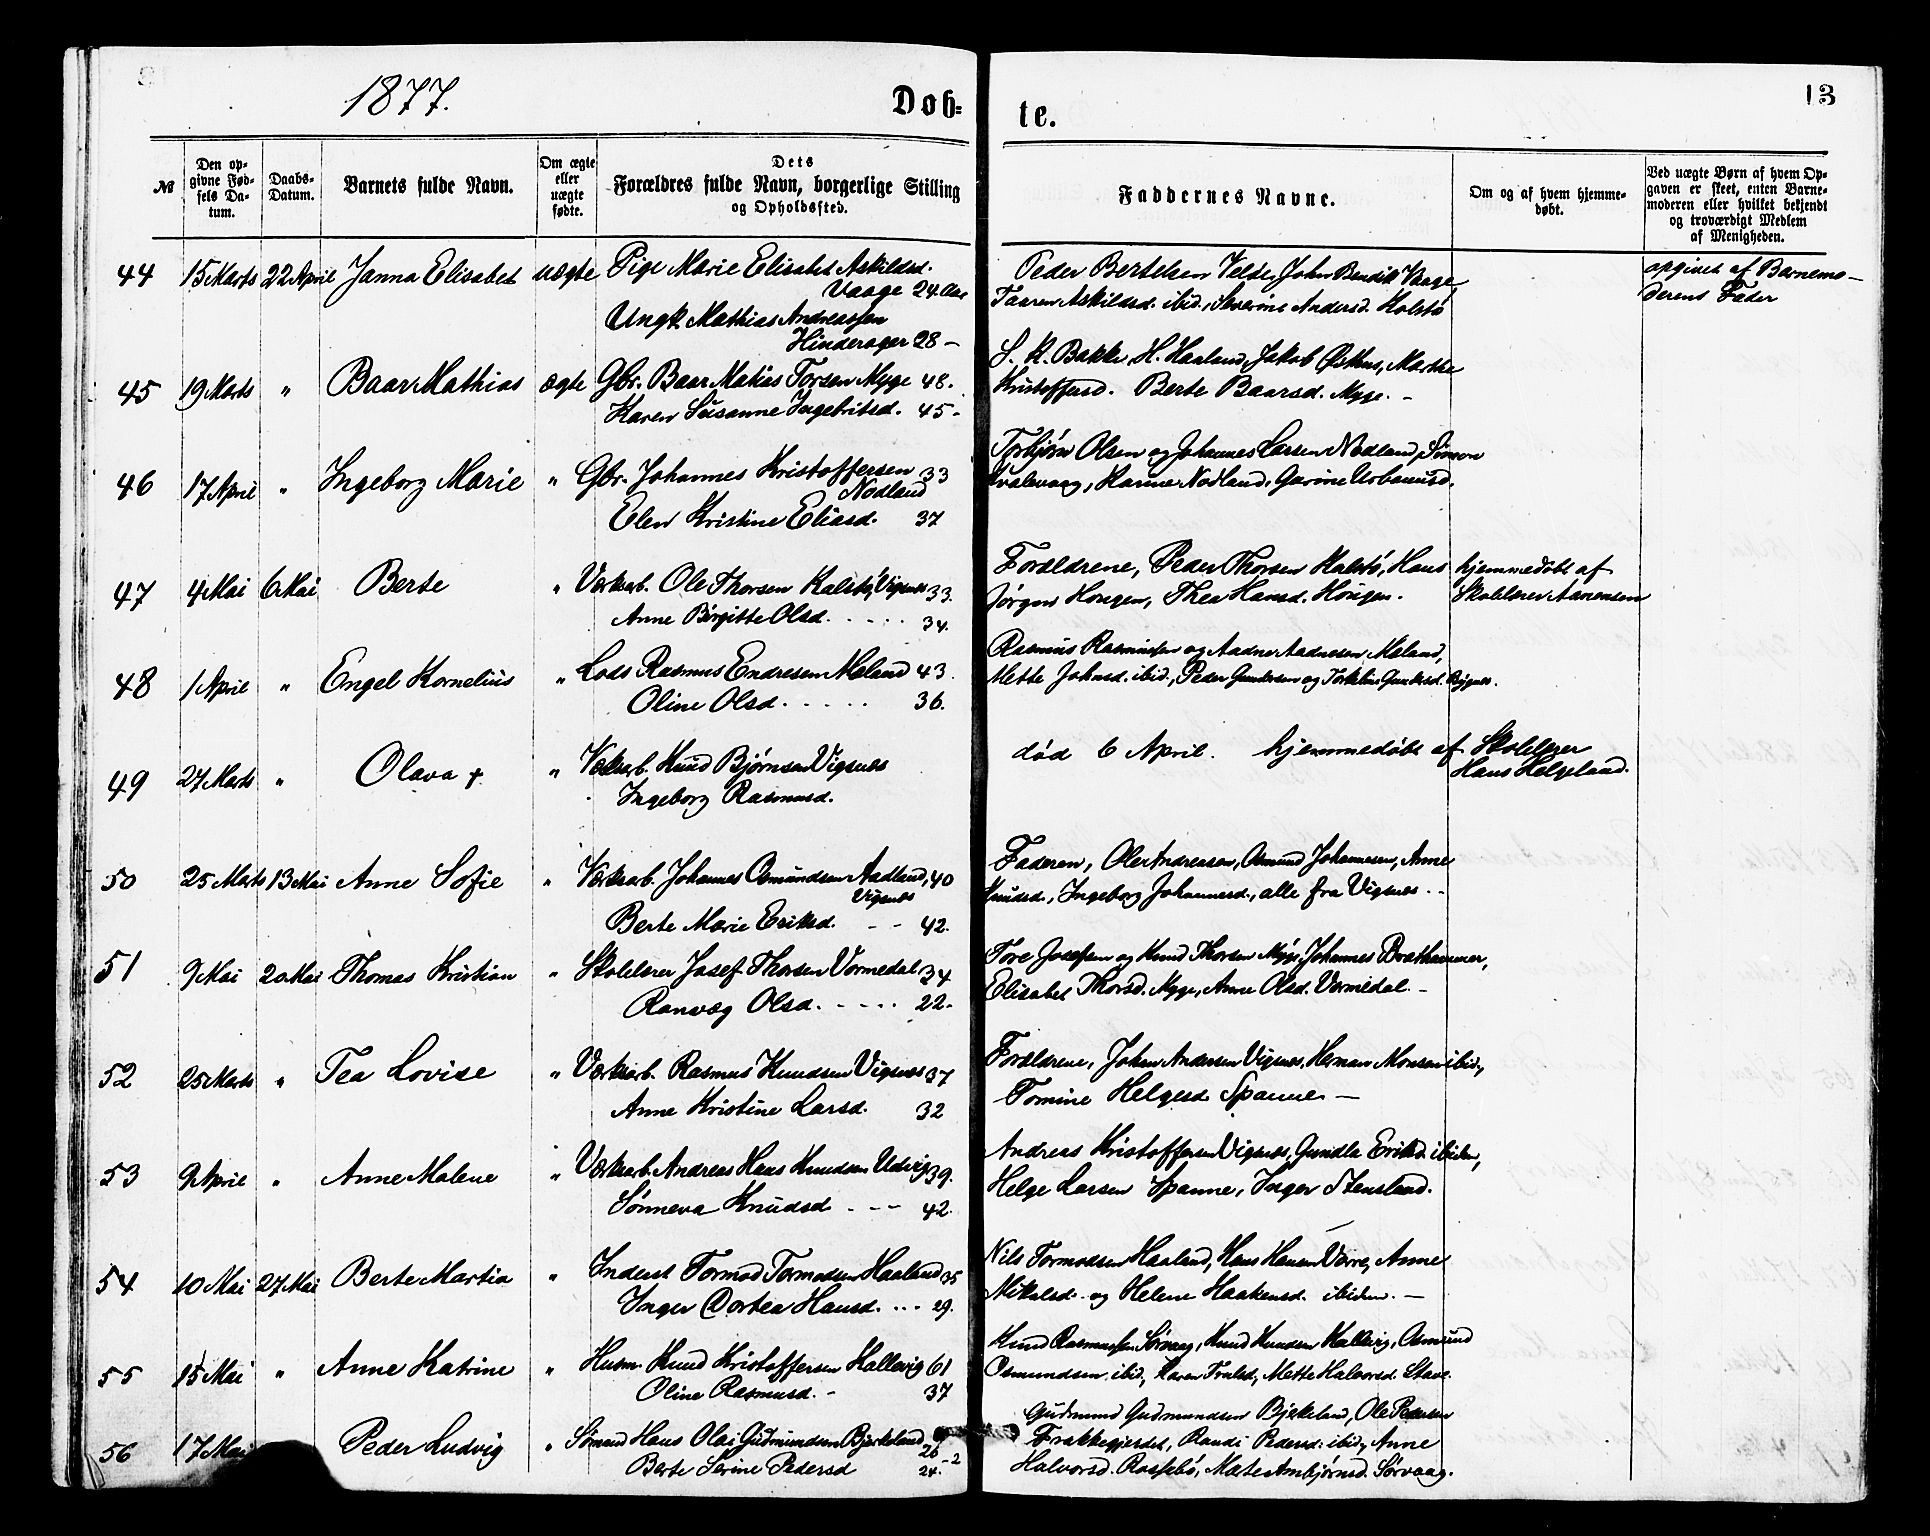 1877.
Døb-
te.
13
№
Den op-
givne Fød-
sels Da-
tum.
Daabs-
Datum.
Barnets fulde Navn.
Om ægte
eller
uægte
fødte.
Dets
Forældres fulde Navn, borgerlige Stilling
og Opholdssted.
Faddernes Navne.
Om og af hvem hjemme-
døbt.
Ved uægte Børn af hvem Op-
gaven er skeet, enten Barne-
moderen eller hvilket bekjendt
og troværdigt Medlem
af Menigheden.
44 15 Marts 22 April Janna Elisabet uægte Pige Marie Elisabet Askildsd.
Vaage 24 Aar
Ungk. Mathias Andreassen
Hinderager 28 -
Peder Bertelsen Velde, John Bendik Vaage,
Taaren Askildsd. ibid., Severine Andersd. Holstø
opgivet af Barnemo-
derens Fader
45 19 Marts " Baar Mathias ægte Gbr. Baar Matias Torsen Myge 48.
Karen Susanne Ingebritsd. 45 -
S. K. Bakke, H. Haaland, Jakob Østhus, Marthe
Kristoffersd. Berte Baarsd. Myge. -
46 17 April " Ingeborg Marie " Gbr. Johannes Kristoffersen 33
Nodland
Elen Kristine Eliasd. 37
Torbjørn Olsen og Johannes Larsen Nodland, Simon
Kvalevaag, Hanne Nodland, Garine Urbanusd.
47 4 Mai 6 Mai Berte " Værksarb. Ole Thorsen Kalstø, Vigsnes 33.
Anne Birgitte Olsd. . . . . . 34.
Forældrene, Peder Thorsen Kalstø, Hans
Jørgen Hougen, Thea Hansd. Hougen.
hjemmedøbt af
Skolelærer Aanensen
48 1 April " Engel Kornelius " Lods Rasmus Endresen Meland 43.
Oline Olsd. . . . . . 36.
Rasmus Rasmussen og Aadne Aadnesen Meland,
Mette Johnsd. ibid., Peder Gundersen og Torkeline Gundersd. Bygnes.
49 27 Marts " Olava + " Værksarb. Knud Bjørnsen Vigsnes
Ingeborg Rasmusd.
død 6 April. hjemmedøbt af Skolelærer
Hans Helgeland.
50 25 Marts 13 Mai Anne Sofie " Værksarb. Johannes Osmundsen Aadland, 40
Vigsnes
Berte Marie Eriksd. - - 42.
Faderen, Ole Andreasen, Osmund Johannesen, Anne
Knudsd., Ingeborg Johannesd., alle fra Vigsnes. -
51 9 Mai 20 Mai Thomas Kristian " Skolelærer Josef Thorsen Vormedal 34
Ranvæg Olsd. - - - - 22.
Tore Josefsen og Knud Thorsen Myge, Johannes Brathammer,
Elisabet Thorsd. Myge, Anne Olsd. Vormedal. -
52 25 Marts " Tea Lovise " Værksarb. Rasmus Knudsen Vigsnes 37
Anne Kristine Larsd. 32
Forældrene, Johan Andersen Vigsnes, Herman Monsen ibid.,
Tomine Helgesd. Spanne. -
53 9 April " Anne Malene " Værksarb. Andreas Hans Knudsen Udvig 39.
Sønneva Knudsd - - - 42.
Andreas Kristoffersen Vigsnes, Gundla Eriksd. ibiden,
Helge Larsen Spanne, Inger Stensland.
54 10 Mai 27 Mai Berte Martia " Inderst Tormod Tormodsen Haaland 35
Inger Dortea Hansd. . . . 29.
Nils Tormodsen Haaland, Hans Hansen Værre, Anne
Mikalsd. og Helene Haakensd. ibidem. -
55 15 Mai " Anne Katrine " Husm. Knud Kristoffersen Hallevig 61
Oline Rasmusd. - 37
Knud Rasmussen Sørvaag, Knud Knudsen Hallevig, Osmund
Osmundsen ibid, Karen Truelsd., Mette Halvorsd. Stave.
56 17 Mai Peder Ludvig " Sømand Hans Olai Gudmundsen Bjerkeland 26
Berte Serine Pedersd 24. -2
Gudmund Gudmundsen Bjerkeland, Ole Pedersen
Frakkegjerdet, Randi Pedersd. ibid, Anne
Halvorsd. Rossebø, Mæte Ambjørnsd. Sørvaag.